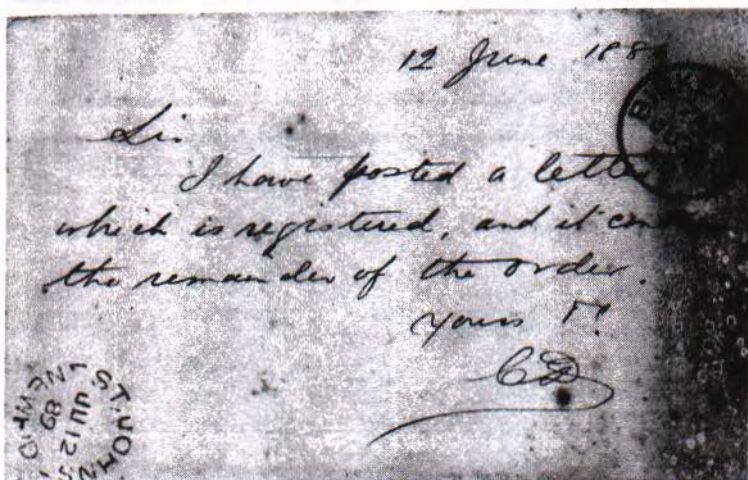 12 June 188
Sir
I have posted a letter
which is registered, and it
the remainder of the order.
yours
CD
ST. JOHN'S
NEWF'D
JU 12
89